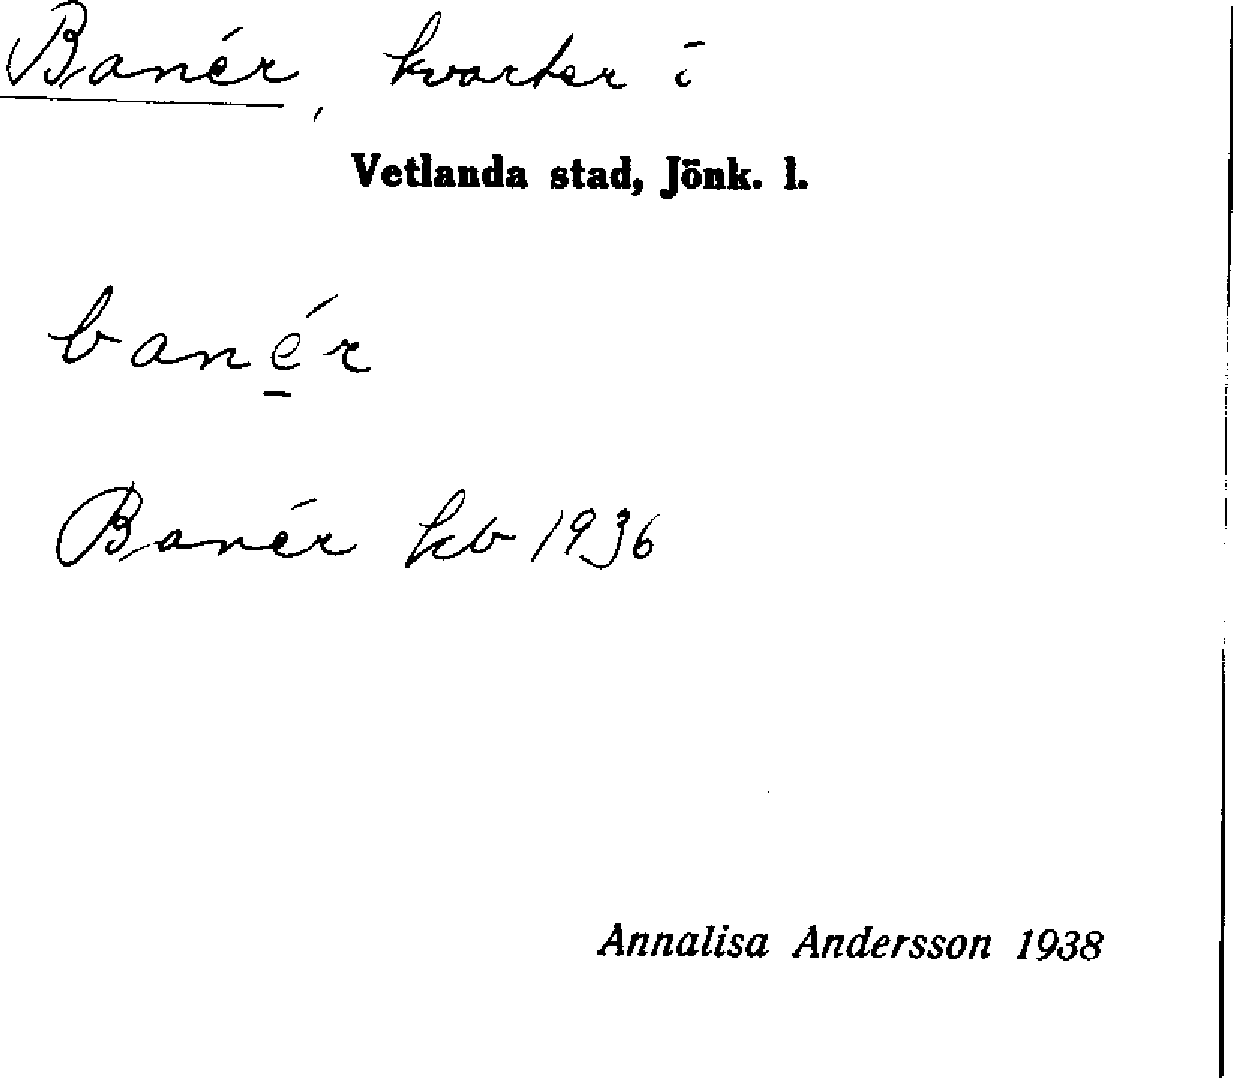 Banér, kvarter i
Vetlanda stad, Jönk. l.
banér
Banér kb 1936
Annalisa Andersson 1938